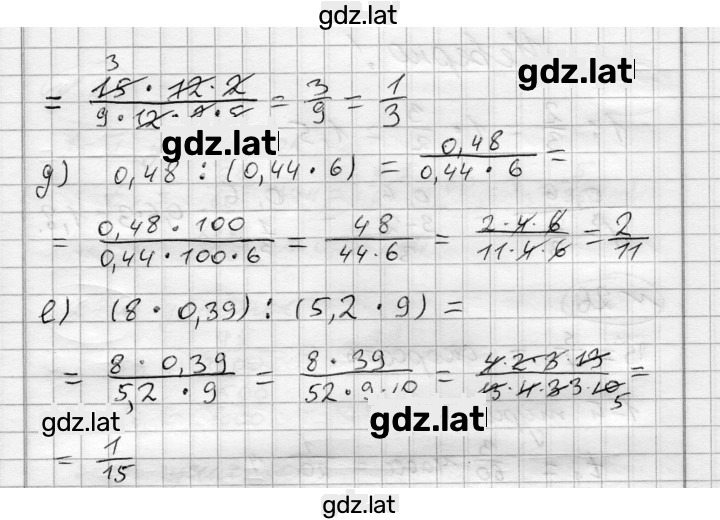 gdz.lat
3
= 15 · 12 · 2 / 9 · 12 · = 3/9 = 1/3
gdz.lat
gdz.lat
g) 0,48 : (0,44 · 6) = 0,48 / 0,44 · 6 =
= 0,48 · 100 / 0,44 · 100 · 6 = 48 / 44 · 6 = 2 · 4 · 6 / 11 · 4 · 6 = 2/11
e) (8 · 0,39) : (5,2 · 9) =
= 8 · 0,39 / 5,2 · 9 = 8 · 39 / 52 · 9 · 10 = 4 · 2 · 3 · 13 / 13 · 4 · 3 · 3 · 10 =
5
gdz.lat
gdz.lat
gdz.lat
= 1/15
gdz.lat